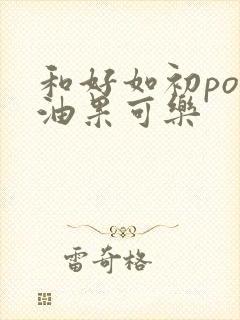 和好如初po
油果可樂
雷奇格